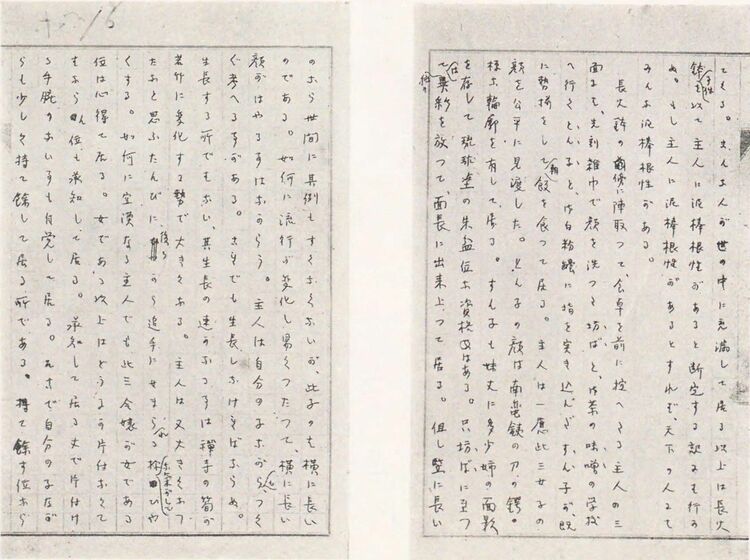 こんな人が世の中に充満して居る以上は長火
鉢を以て主人に泥棒根性があると断定する訳にも行か
ぬ。もし主人に泥棒根性があるとすれば、天下の人には
みんな泥棒根性がある。
長火鉢の傍に陣取つて、食卓を前に控へたる主人の三
面には、先刻雑巾で顔を洗つた坊ばと、御茶の味噌の学校
へ行くとん子と、御白粉罎に指を突き込んだすん子が既
に勢揃をして朝飯を食つて居る。主人は一応此三女子の
顔を公平に見渡した。とん子の顔は南蛮鉄の刀の鍔の
様な輪廓を有して居る。すん子も妹丈に多少姉の面影
を存して琉球塗の朱盆位な資格はある。只坊ばに至つ
ては独り異彩を放つて、面長に出来上つて居る。但し竪に長い
のなら世間に其例もすくなくないが、此子のは横に長い
のである。如何に流行が変化し易くつたつて、横に長い
顔がはやる事はなからう。主人は自分の子ながらも、つくづ
く考へる事がある。これでも生長しなければならぬ。
生長する所でもない、其生長の速かなる事は禅寺の筍が
若竹に変化する勢で大きくなる。主人は又大きくなつ
たなと思ふたんびに後ろから追手にせまられる様な気がしてひや
くする。如何に空漠なる主人でも此三令嬢が女である
位は心得て居る。女である以上はどうにか片付なくて
はならん位も承知して居る。承知して居る丈で片付け
る手腕のない事も自覚して居る。そこで自分の子なが
らも少しく持て余して居る所である。持て余す位なら